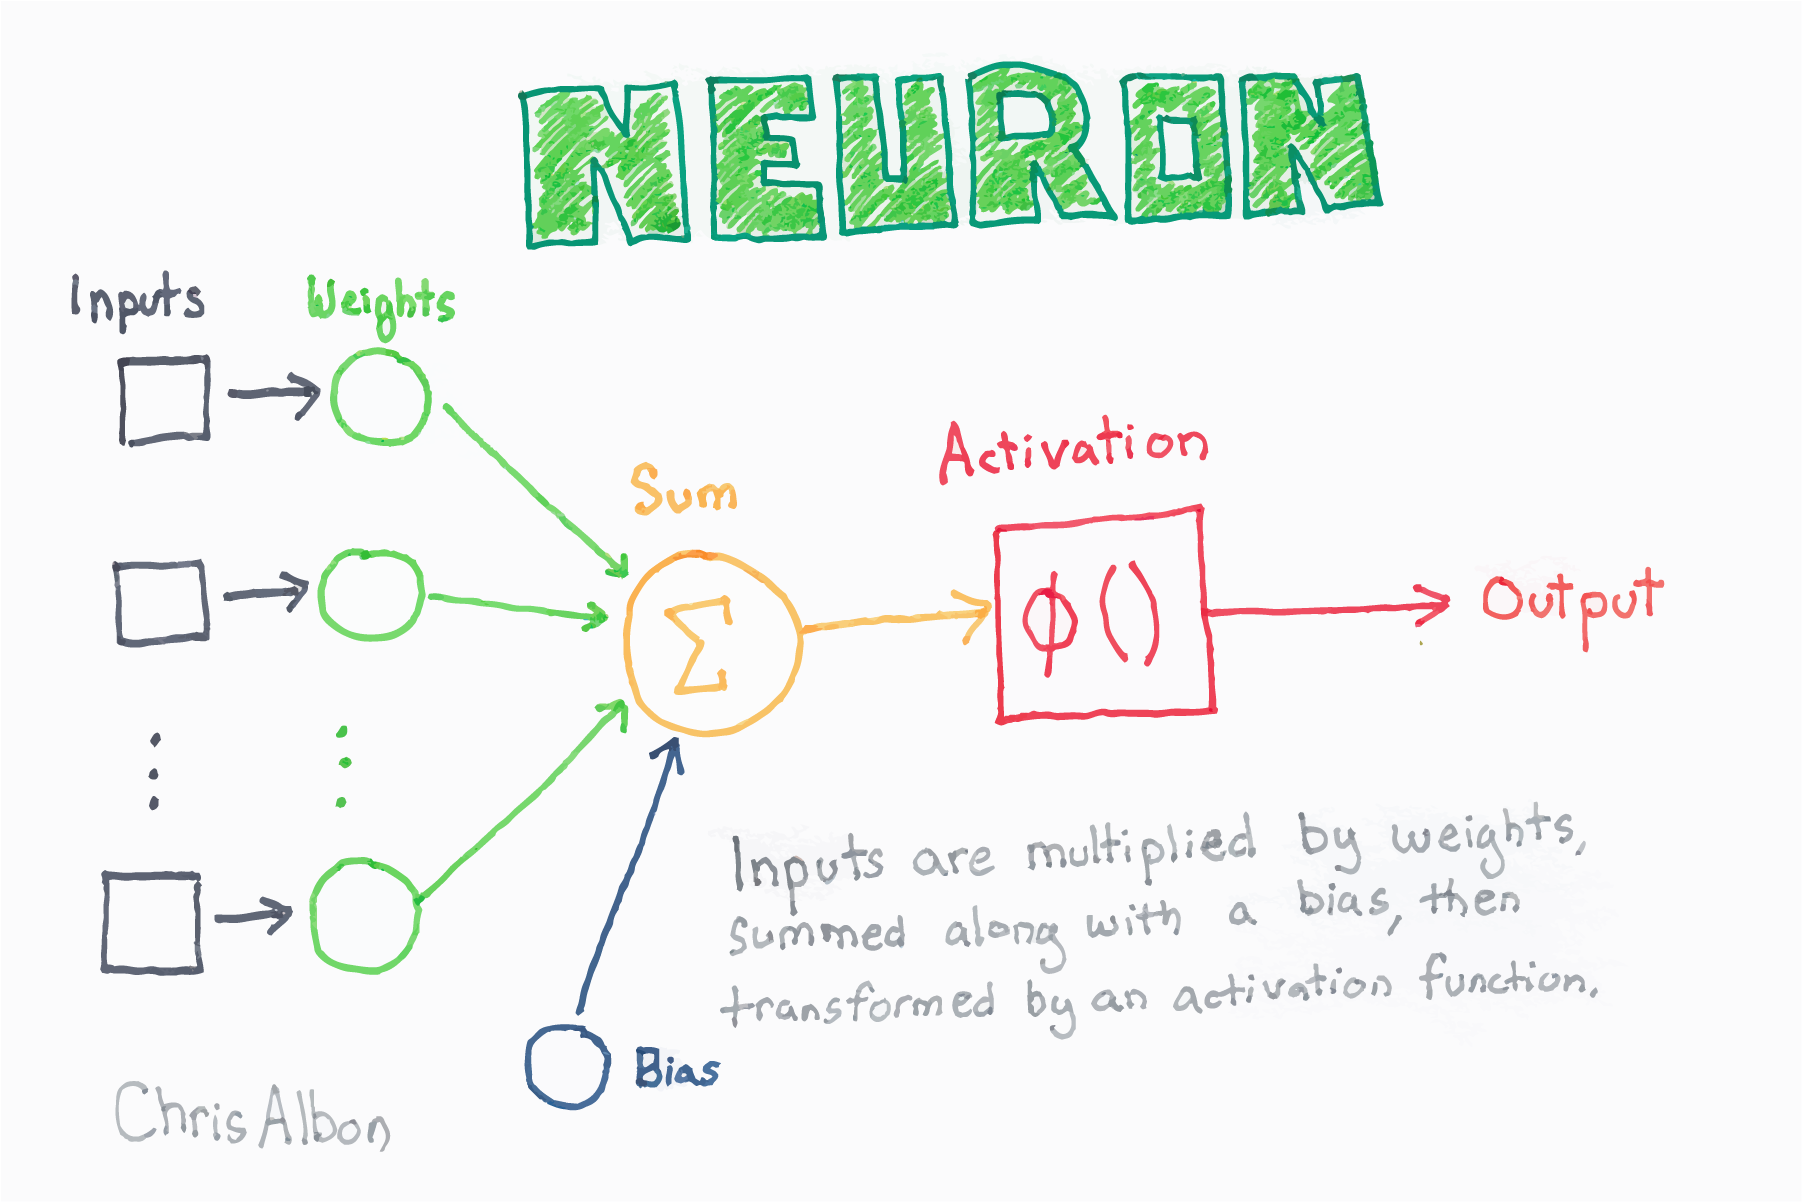 NEURON
Inputs
Weights
Sum
Σ
Activation
ϕ ()
Output
Inputs are multiplied by weights,
summed along with a bias, then
transformed by an activation function.
Bias
Chris Albon